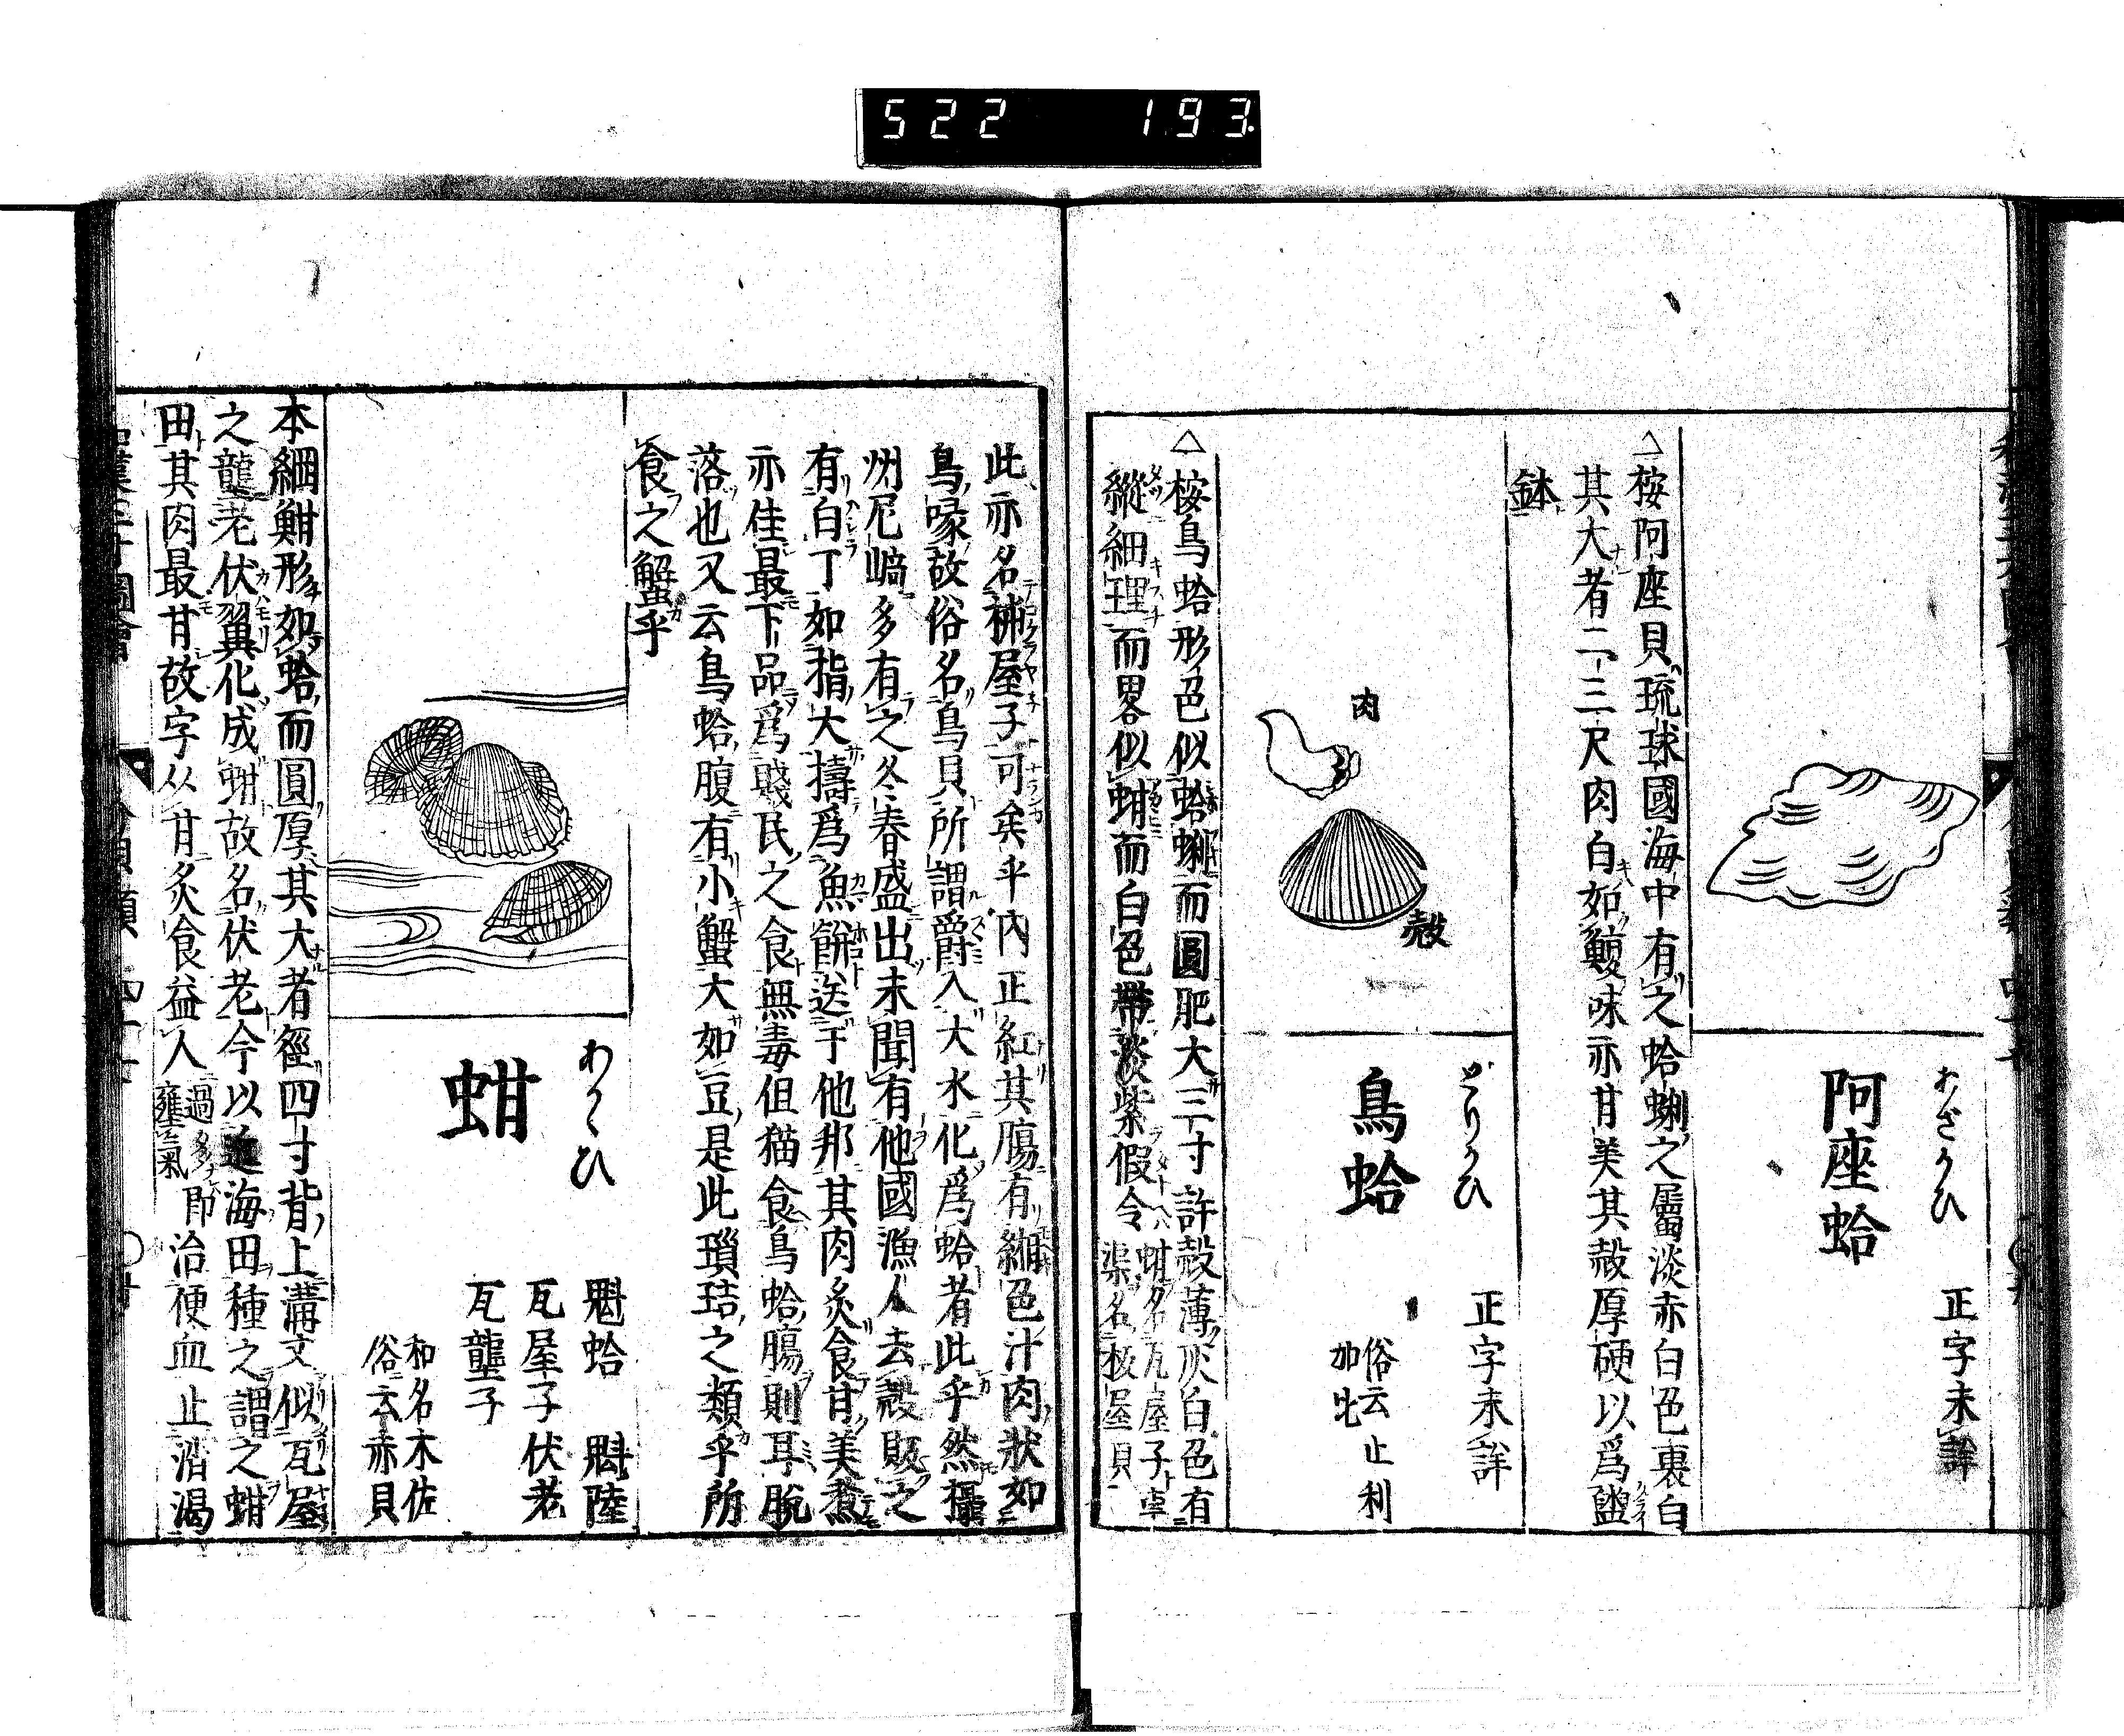 522 193.
あざかひ
阿座蛤
正字未詳
△桉阿座貝琉球國海中有之蛤蜊之屬淡赤白色裏白
其大者二三尺肉白如鰒味亦甘美其殻厚硬以爲盥
鉢
肉
殻
とりかひ
鳥蛤
正字未詳
俗云止利
加比
△桉鳥蛤形色似蛤蜊而圓肥大三寸許殻薄灰白色有
縱細理而畧似蚶而白色帶淡紫假令
蚶名瓦屋子車
渠名板屋貝
此亦名
屋子可矣乎內正紅其腸有緗色汁肉狀如
鳥喙故俗名鳥貝所謂爵入大水化爲蛤者此乎然攝
州尼﨑多有之冬春盛出未聞有他國漁人去殻販之
有白丁如指大擣爲魚餠送于他邦其肉炙食甘美煮
亦佳最下品爲賤民之食無毒但猫食鳥蛤腸則耳脫
落也又云鳥蛤腹有小蟹大如豆是此瑣蛣之類乎所
食之蟹乎
わかひ
蚶
魁蛤 魁陸
瓦屋子 伏老
瓦壟子
和名木佐
俗云赤貝
本綱魽形如蛤而圓厚其大者徑四寸背上溝文似瓦屋
之壟老伏翼化成蚶故名伏老今以近海田種之謂之蚶
田其肉最甘故字从甘炙食益人
過多即
壅氣
治便血止消渴